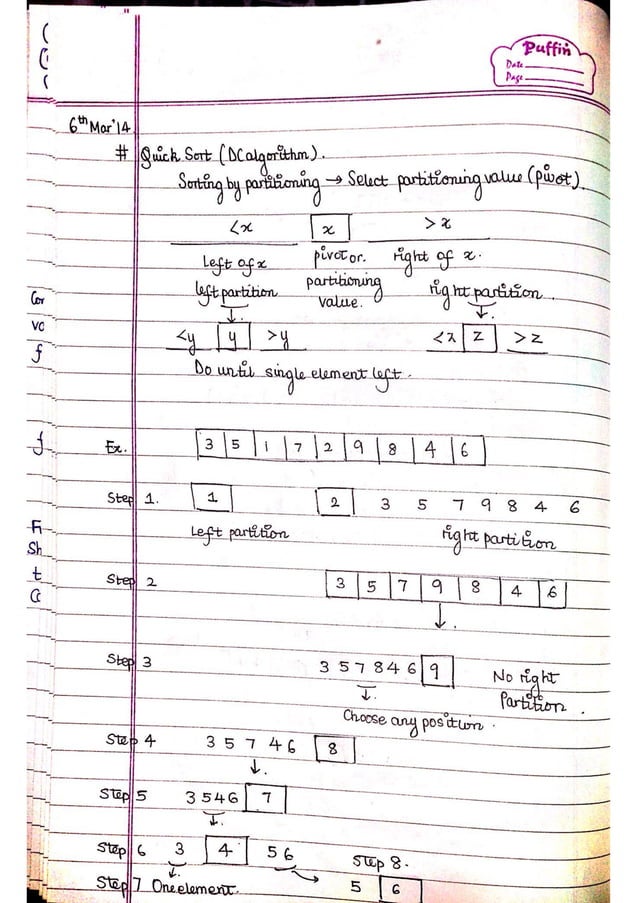 Puffin
Date
Page
6th Mar'14
# Quick Sort (DC algorithm).
Sorting by partitioning → Select partitioning value (pivot).
<x x >x
Left of x pivot or. right of x.
left partition partitioning right partition.
value.
<y y >y <z z >z
Do until single element left.
Ex. 3 5 1 7 2 9 8 4 6
Step 1. 1 2 3 5 7 9 8 4 6
Left partition right partition
Step 2 3 5 7 9 8 4 6
Step 3 3 5 7 8 4 6 9 No right
Partition.
Choose any position.
Step 4 3 5 7 4 6 8
Step 5 3 5 4 6 7
Step 6 3 4 5 6 Step 8.
Step 7 One element. 5 6
Cor
vc
f
f
Fi
Sh
t